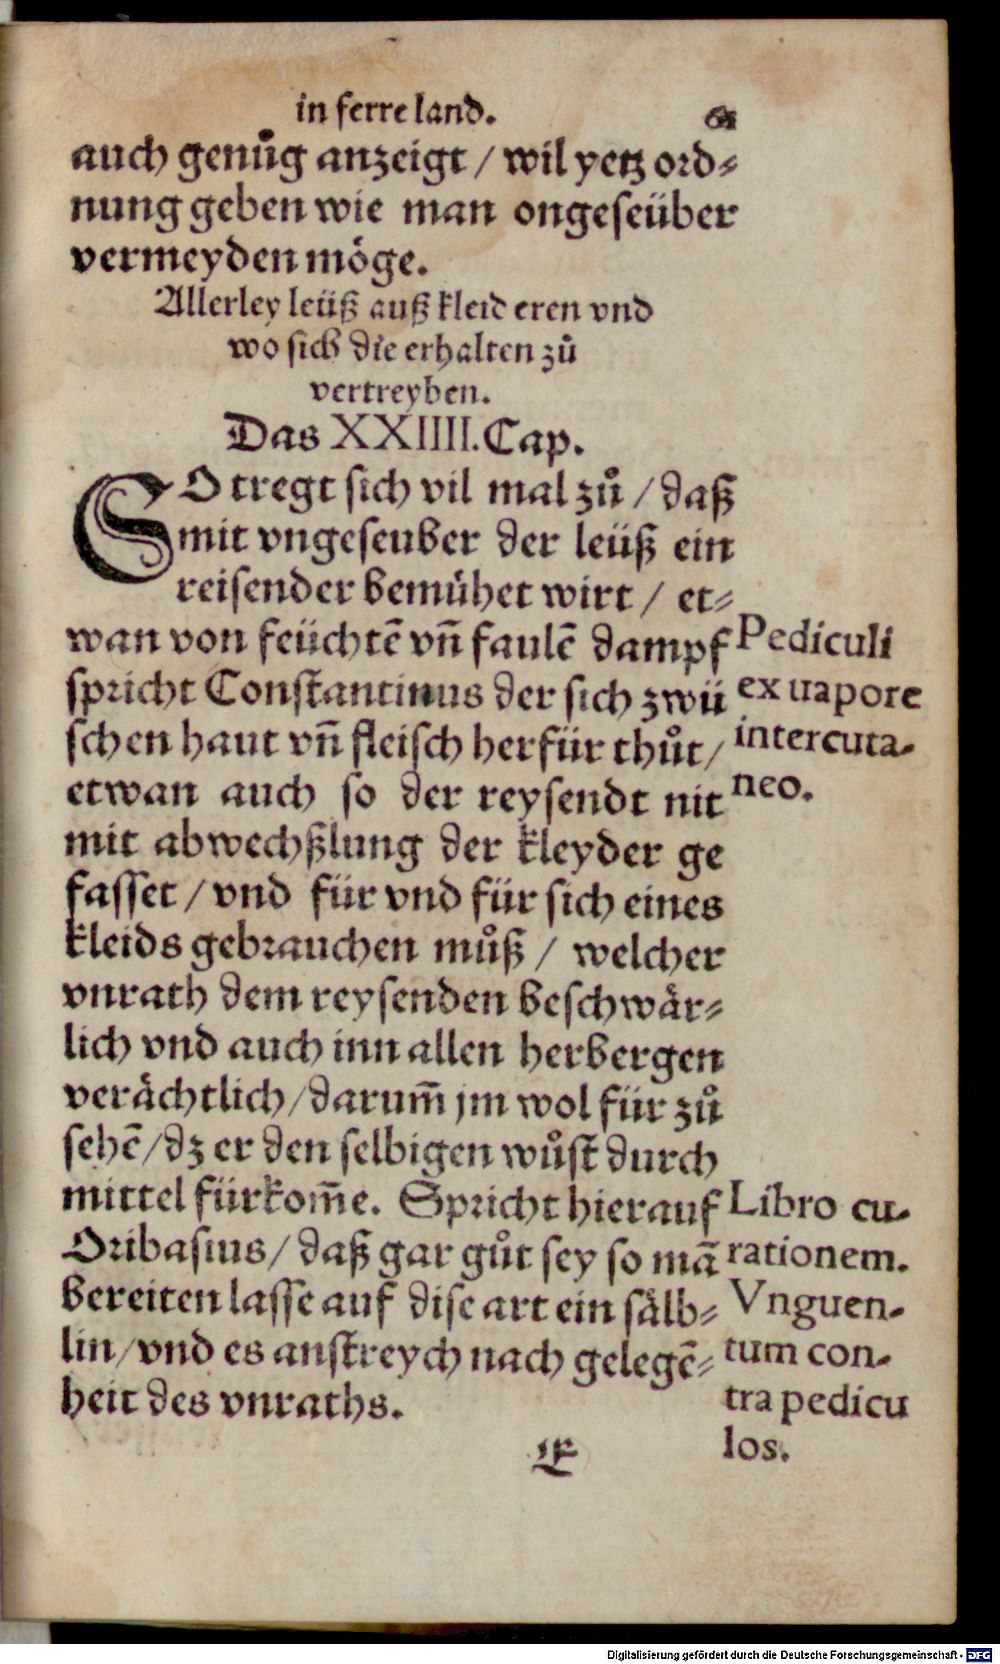 in ferre land. 61
auch genůg anzeigt / wil yetz ord⸗
nung geben wie man ongeseüber
vermeyden möge.
Allerley leüß auß kleid eren vnd
wo sich die erhalten zů
vertreyben.
Das XXIIII. Cap.
SO tregt sich vil mal zů / daß
mit vngeseuber der leüß ein
reisender bemühet wirt / et⸗
wan von feüchtē vn̄ faulē dampf
spricht Constantinus der sich zwü
schen haut vn̄ fleisch herfür thůt /
etwan auch so der reysendt nit
mit abwechßlung der kleyder ge
fasset / vnd für vnd für sich eines
kleids gebrauchen můß / welcher
vnrath dem reysenden beschwär⸗
lich vnd auch inn allen herbergen
verächtlich / darum̄ jm wol für zů
sehē / dz er den selbigen wůst durch
mittel fürkom̄e. Spricht hierauf
Oribasius / daß gar gůt sey so mā
bereiten lasse auf dise art ein sälb⸗
lin / vnd es anstreych nach gelegē⸗
heit des vnraths.
Pediculi
ex uapore
intercuta-
neo.
Libro cu-
rationem.
Vnguen-
tum con-
tra pedicu
los.
Digitalisierung gefördert durch die Deutsche Forschungsgemeinschaft - DFG